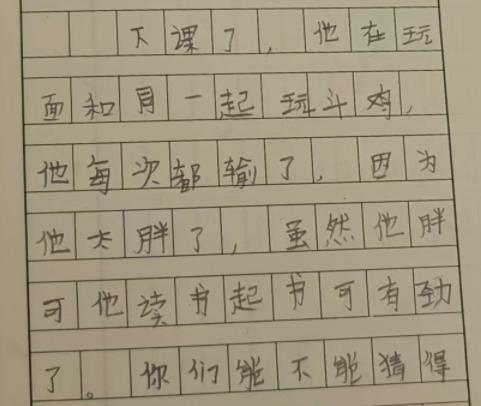 下课了，他在玩
面和月一起玩斗鸡，
他每次都输了，因为
他大胖了，虽然他胖
可他读书起书可有劲
了。你们能不能猜得